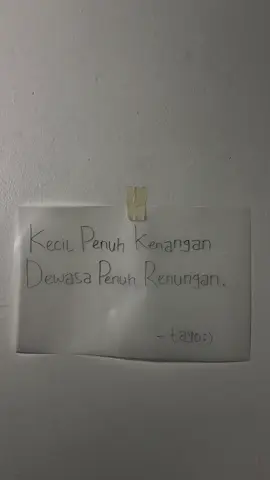 Kecil Penuh Kenangan
Dewasa Penuh Renungan.
- tayo:)